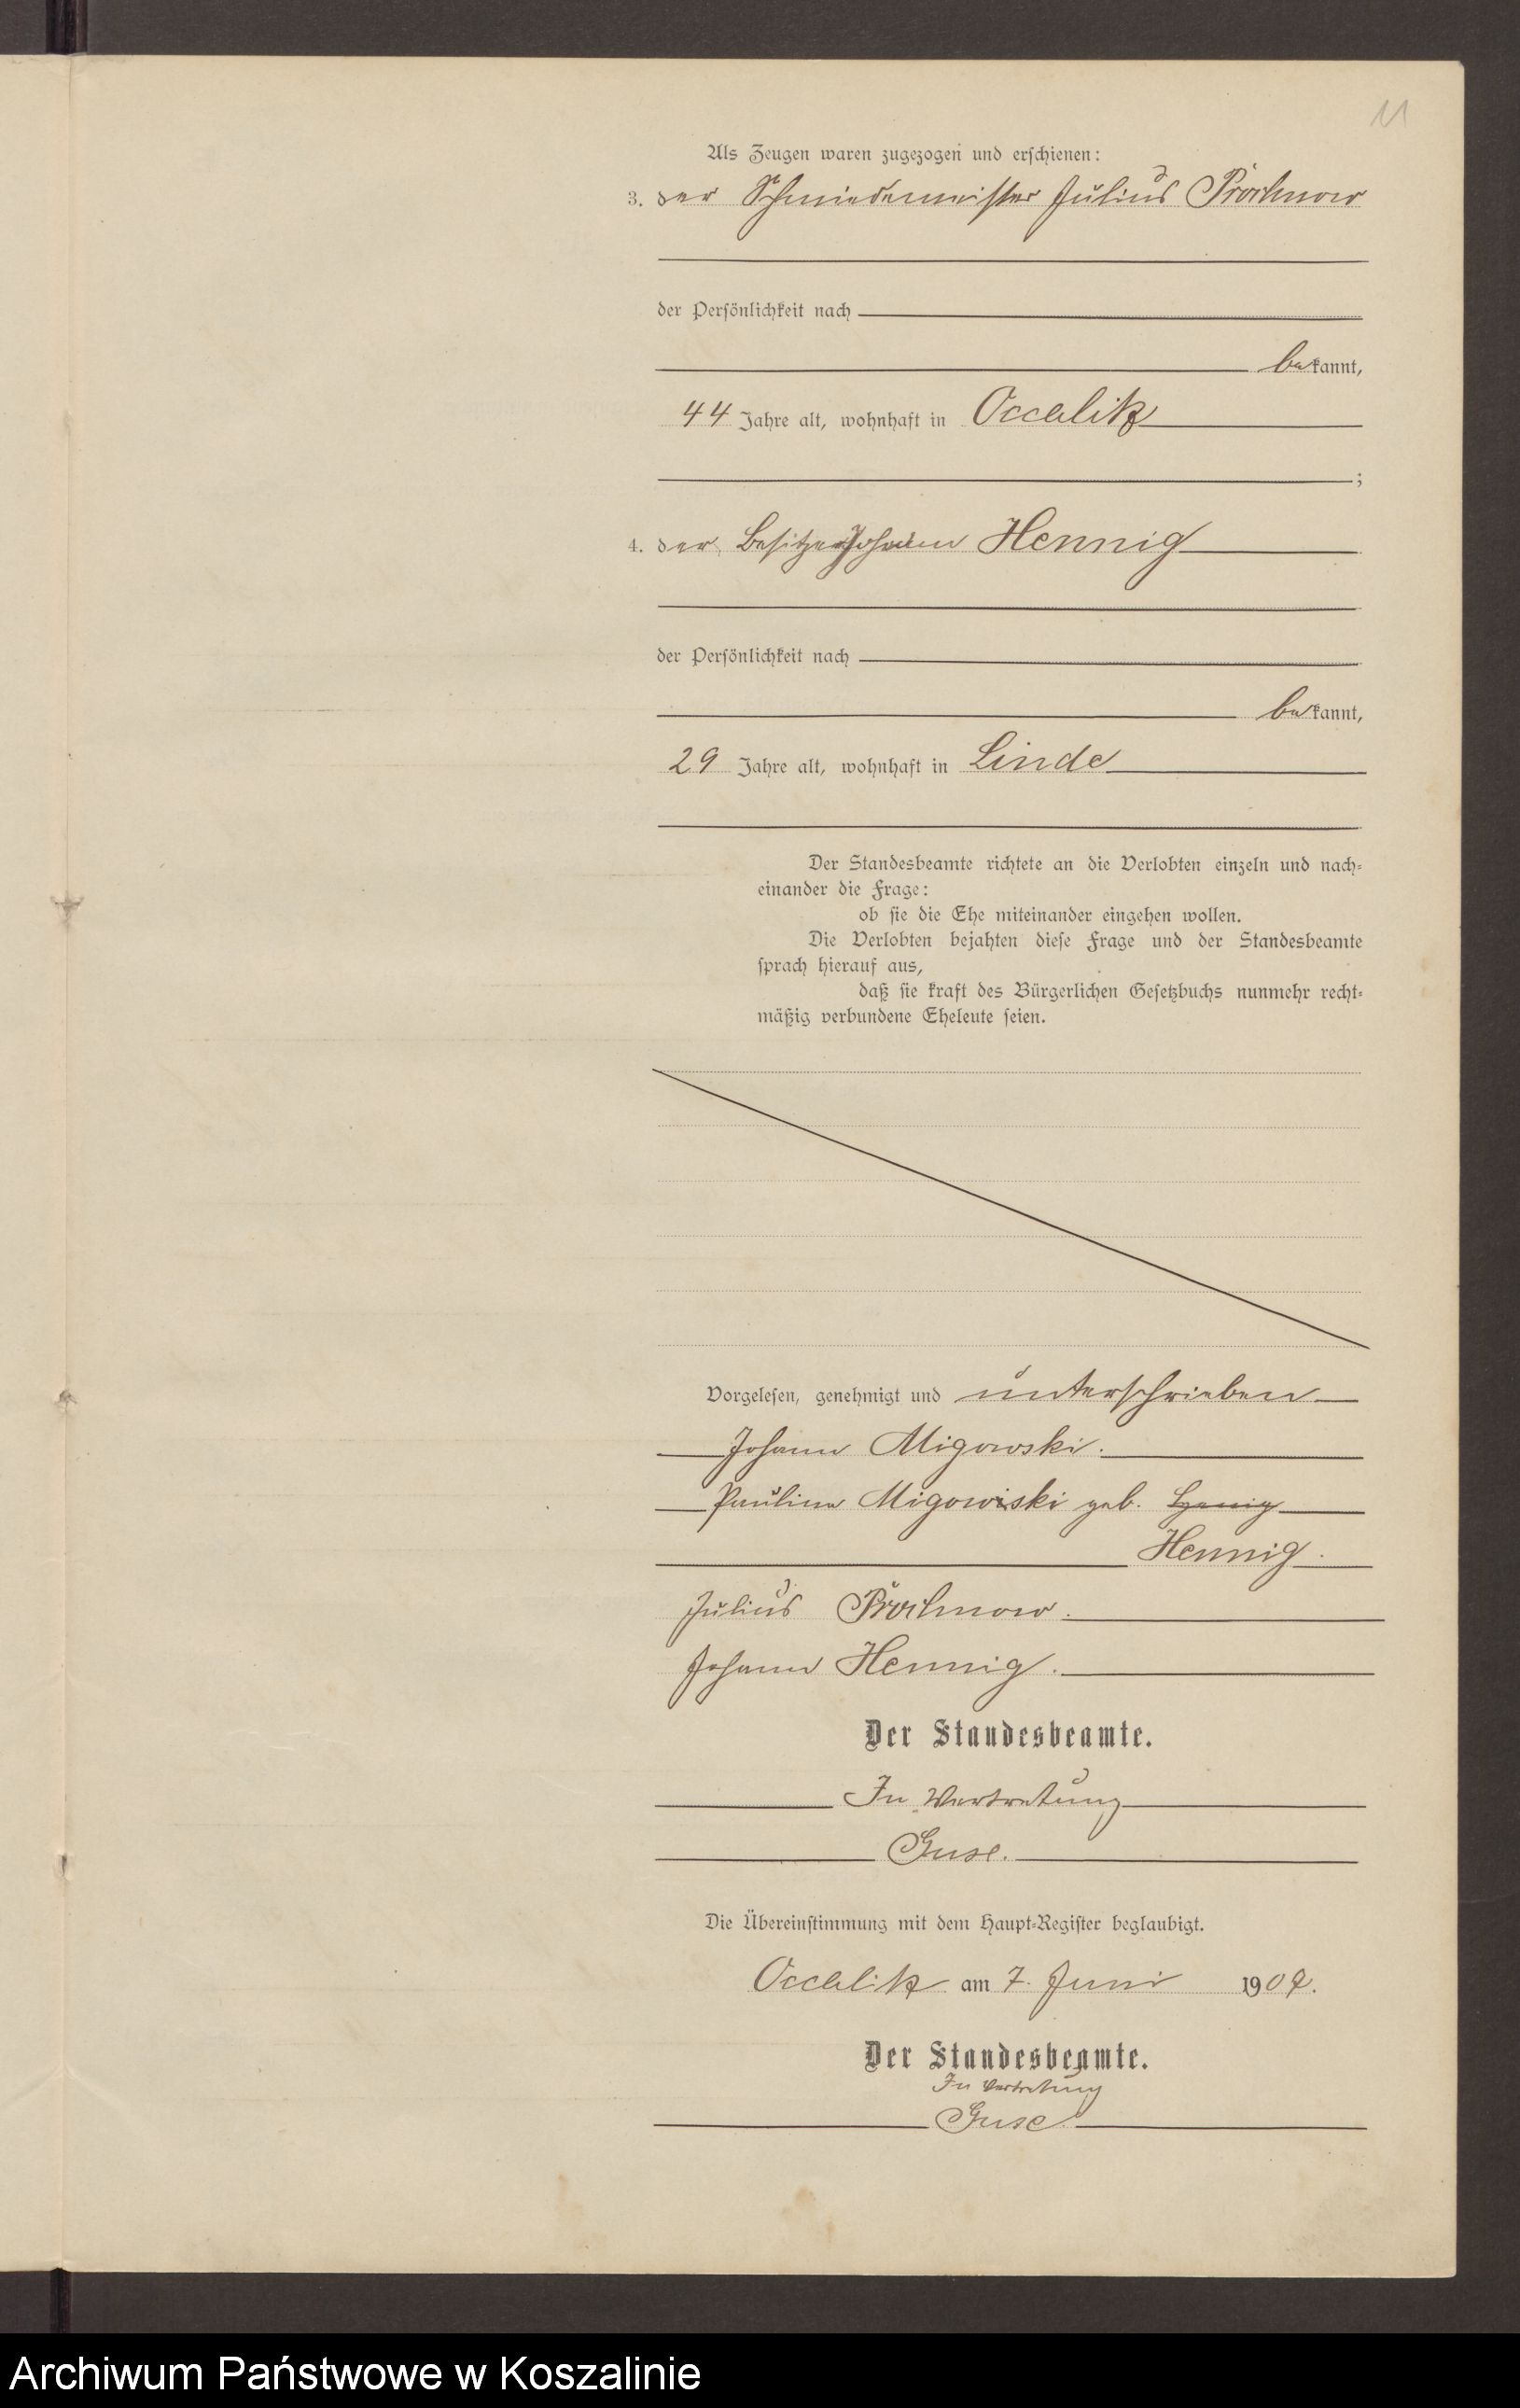 11
Als Zeugen waren zugezogen und erschienen:
3. der Schmiedemeister Julius Prochnow
der Persönlichkeit nach
bekannt,
44 Jahre alt, wohnhaft in Occalitz
;
4. der Besitzer Johann Hennig
der Persönlichkeit nach
bekannt,
29 Jahre alt, wohnhaft in Linde
Der Standesbeamte richtete an die Verlobten einzeln und nach-
einander die Frage:
ob sie die Ehe miteinander eingehen wollen.
Die Verlobten bejahten diese Frage und der Standesbeamte
sprach hierauf aus,
daß sie kraft des Bürgerlichen Gesetzbuchs nunmehr recht-
mäßig verbundene Eheleute seien.
Vorgelesen, genehmigt und unterschrieben
Johann Migowski.
Pauline Migowski geb.
Hennig.
Julius Prochnow.
Johann Hennig.
Der Standesbeamte.
In Vertretung
Guse.
Die Übereinstimmung mit dem Haupt-Register beglaubigt.
Occalitz am 7. Juni
Der Standesbeamte.
In Vertretung
Guse
Archiwum Państwowe w Koszalinie